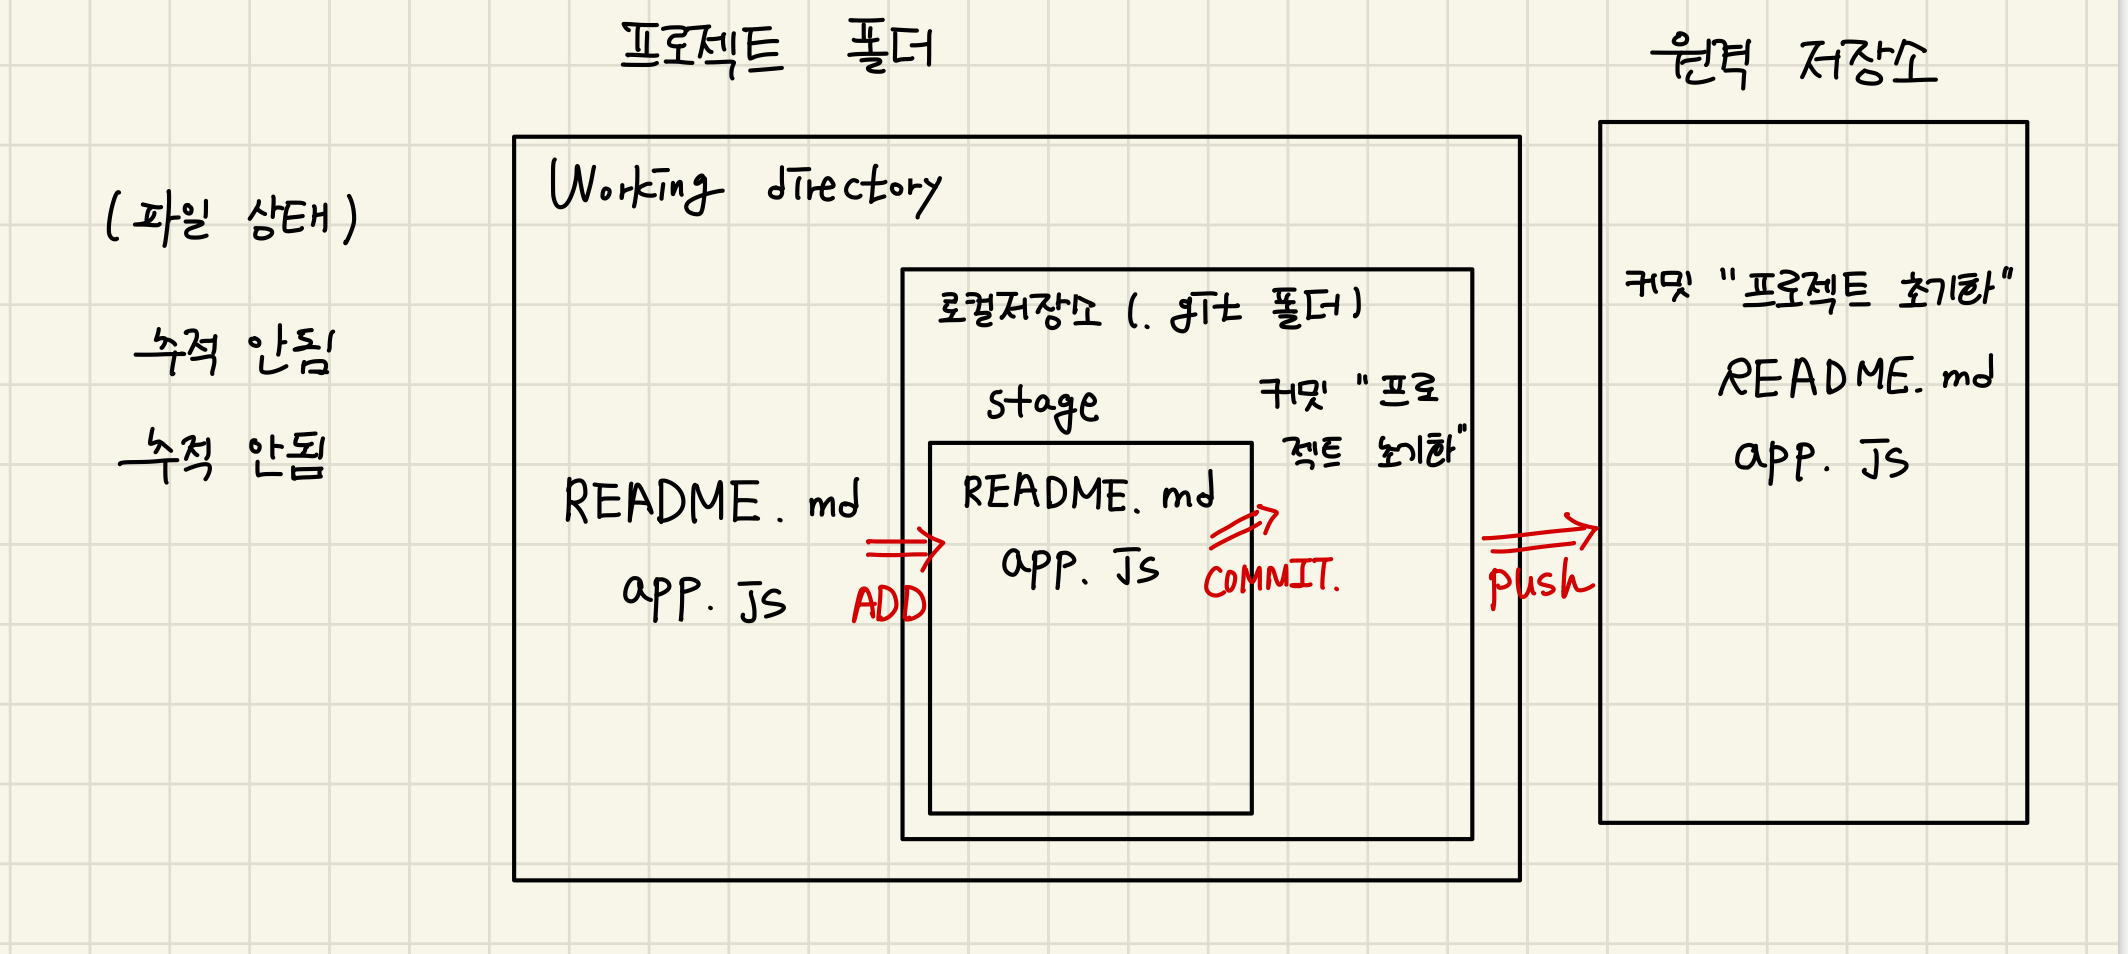 프로젝트 폴더
원격 저장소
Working directory
(파일 상태)
추적 안됨
추적 안됨
README.md
app.js
ADD
로컬저장소 (.git 폴더)
stage
README.md
app.js
커밋 "프로
젝트 초기화"
COMMIT.
push
커밋 "프로젝트 초기화"
README.md
app.js